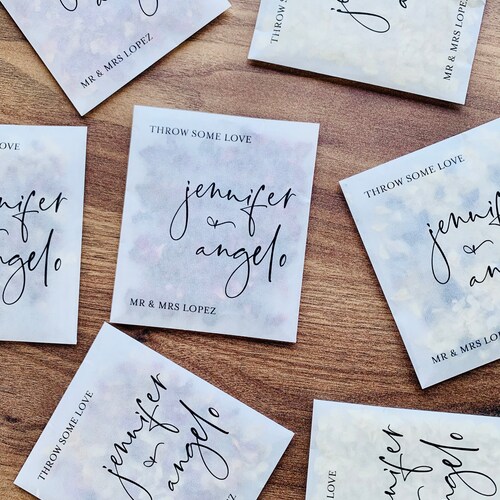 MR & MRS LOPEZ
THROW SOME LOVE
jennifer
&
MR & MRS LOPEZ
THROW SOME LOVE
jennifer
&
angelo
MR & MRS LOPEZ
THROW SOME LOVE
jennifer
&
MR & MRS LOPEZ
THROW SOME LOVE
jennifer
&
angelo